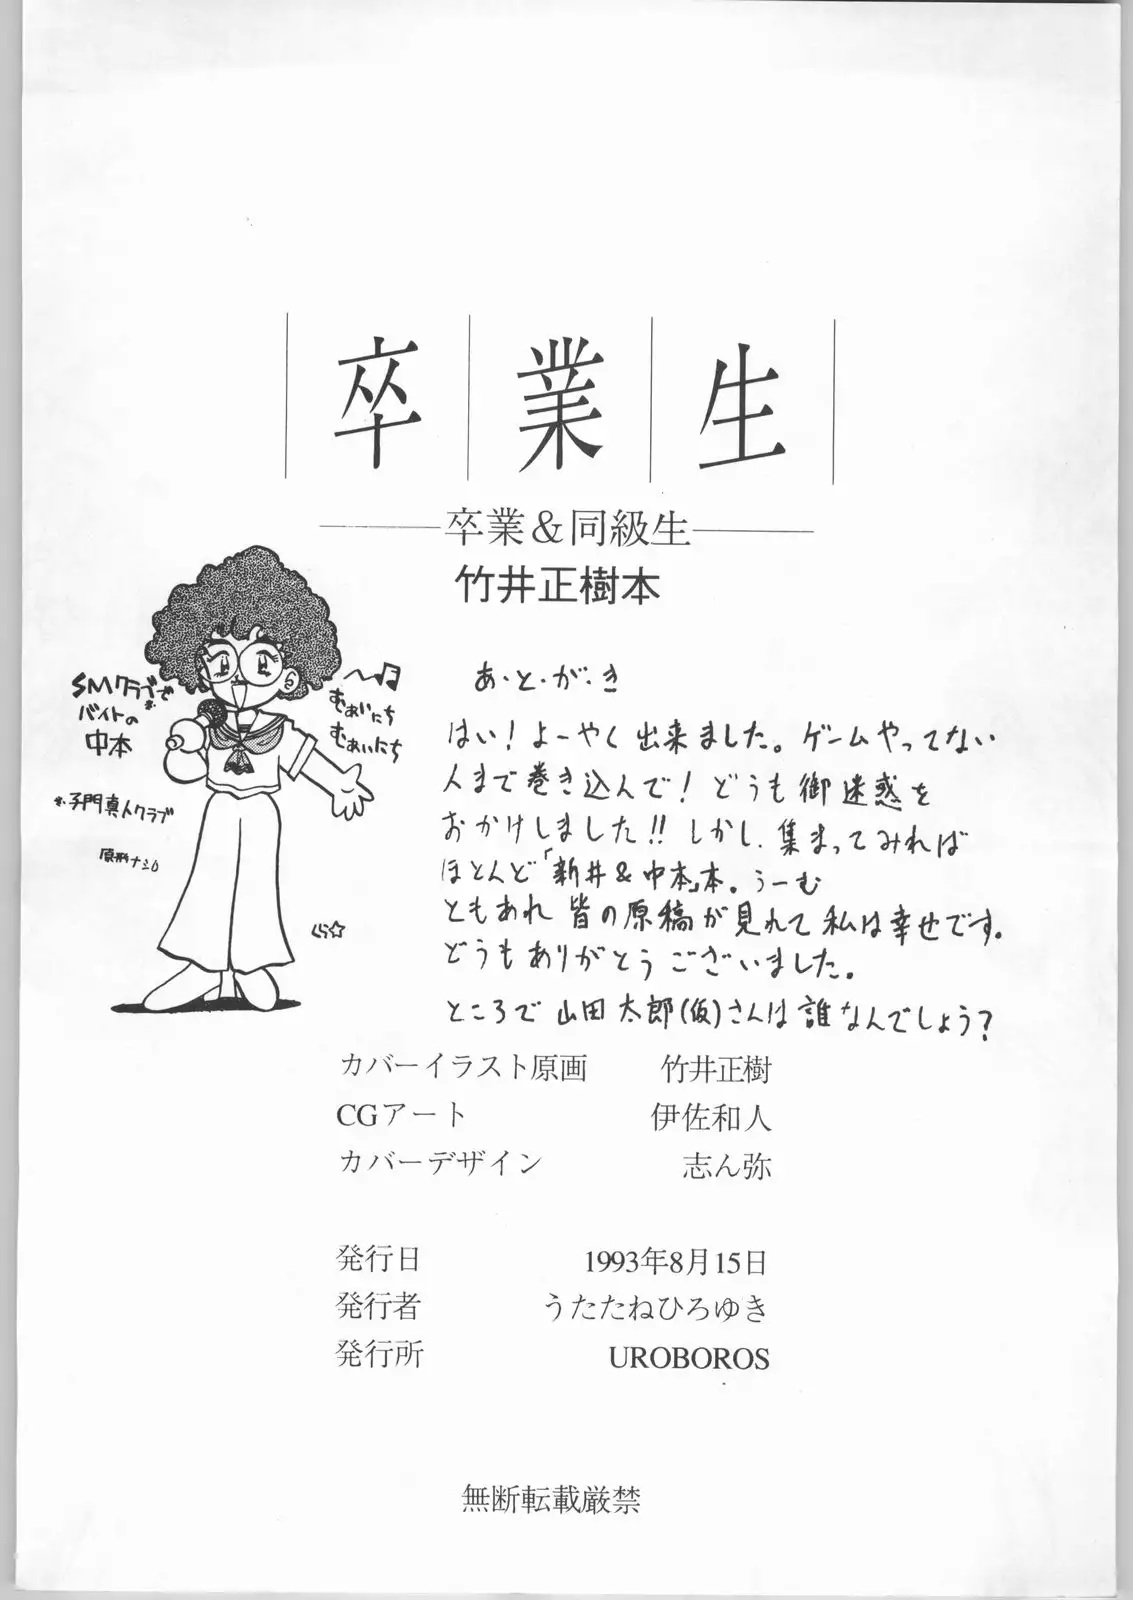 卒業生
卒業&同級生
竹井正樹本
あ・と・が・き
はい！よーやく出来ました。ゲームやってない
人まで巻き込んで！どうも御迷惑を
おかけしました!! しかし、集まってみれば
ほとんど「新井&中本」本。うーむ
ともあれ皆の原稿が見れて私は幸せです。
どうもありがとうございました。
ところで山田太郎(仮)さんは誰なんでしょう？
SMクラブ※で
バイトの
中本
※子門真人クラブ
原形ナシ
むぁいにち
むぁいにち
カバーイラスト原画 竹井正樹
CGアート 伊佐和人
カバーデザイン 志ん弥
発行日 1993年8月15日
発行者 うたたねひろゆき
発行所 UROBOROS
無断転載厳禁